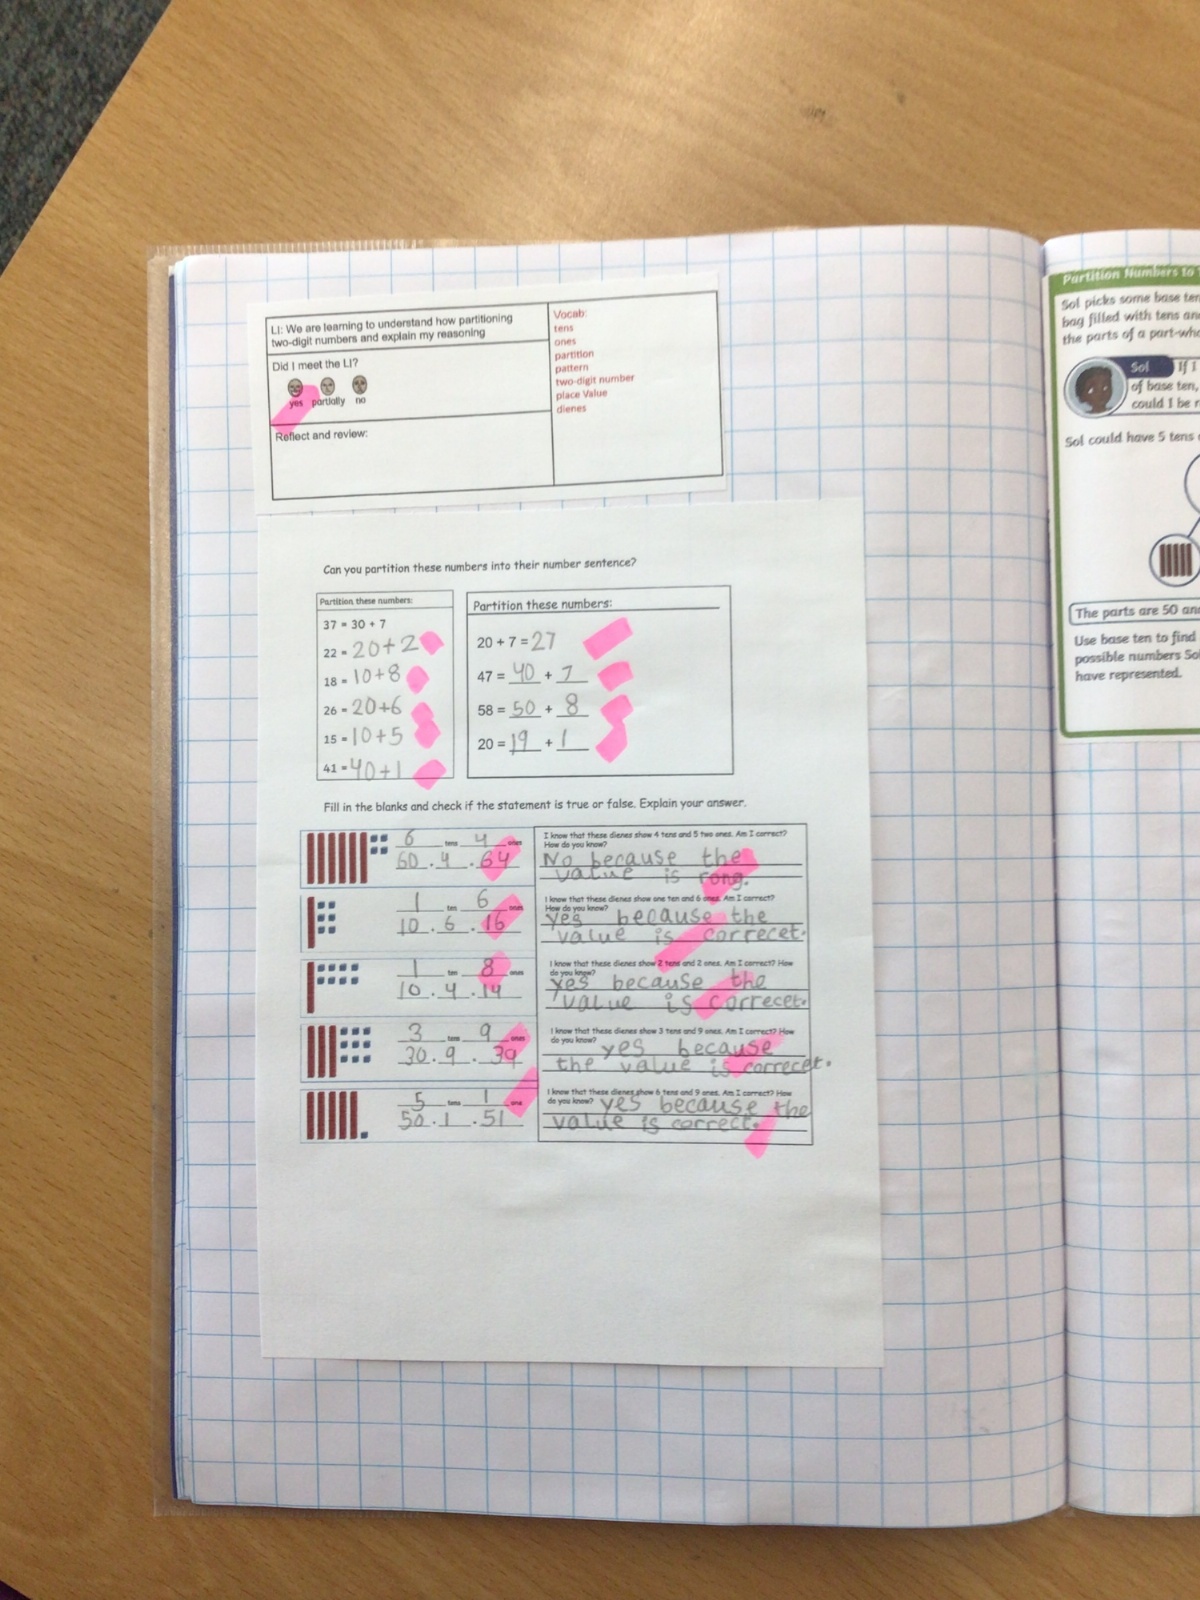 LI: We are learning to understand how partitioning
two-digit numbers and explain my reasoning
Did I meet the LI?
yes partially no
Reflect and review:
Vocab:
tens
ones
partition
pattern
two-digit number
place Value
dienes
Can you partition these numbers into their number sentence?
Partition these numbers:
37 = 30 + 7
22 = 20+2
18 = 10+8
26 = 20+6
15 = 10+5
41 = 40+1
Partition these numbers:
20 + 7 = 27
47 = 40 + 7
58 = 50 + 8
20 = 19 + 1
Fill in the blanks and check if the statement is true or false. Explain your answer.
6 tens 4 ones
60 . 4 . 64
I know that these dienes show 4 tens and 5 two ones. Am I correct?
How do you know?
No because the
value is rong.
1 ten 6 ones
10 . 6 . 16
I know that these dienes show one ten and 6 ones. Am I correct?
How do you know?
yes because the
value is correcet.
1 ten 8 ones
10 . 4 . 14
I know that these dienes show 2 tens and 2 ones. Am I correct? How
do you know?
yes because the
value is correcet.
3 tens 9 ones
30 . 9 . 39
I know that these dienes show 3 tens and 9 ones. Am I correct? How
do you know? yes because
the value is correcet.
5 tens 1 one
50 . 1 . 51
I know that these dienes show 6 tens and 9 ones. Am I correct? How
do you know? yes because the
value is correct.
Partition Numbers to
Sol picks some base ten
bag filled with tens and
the parts of a part-who
Sol
If I
of base ten,
could I be
Sol could have 5 tens
The parts are 50 and
Use base ten to find
possible numbers Sol
have represented.